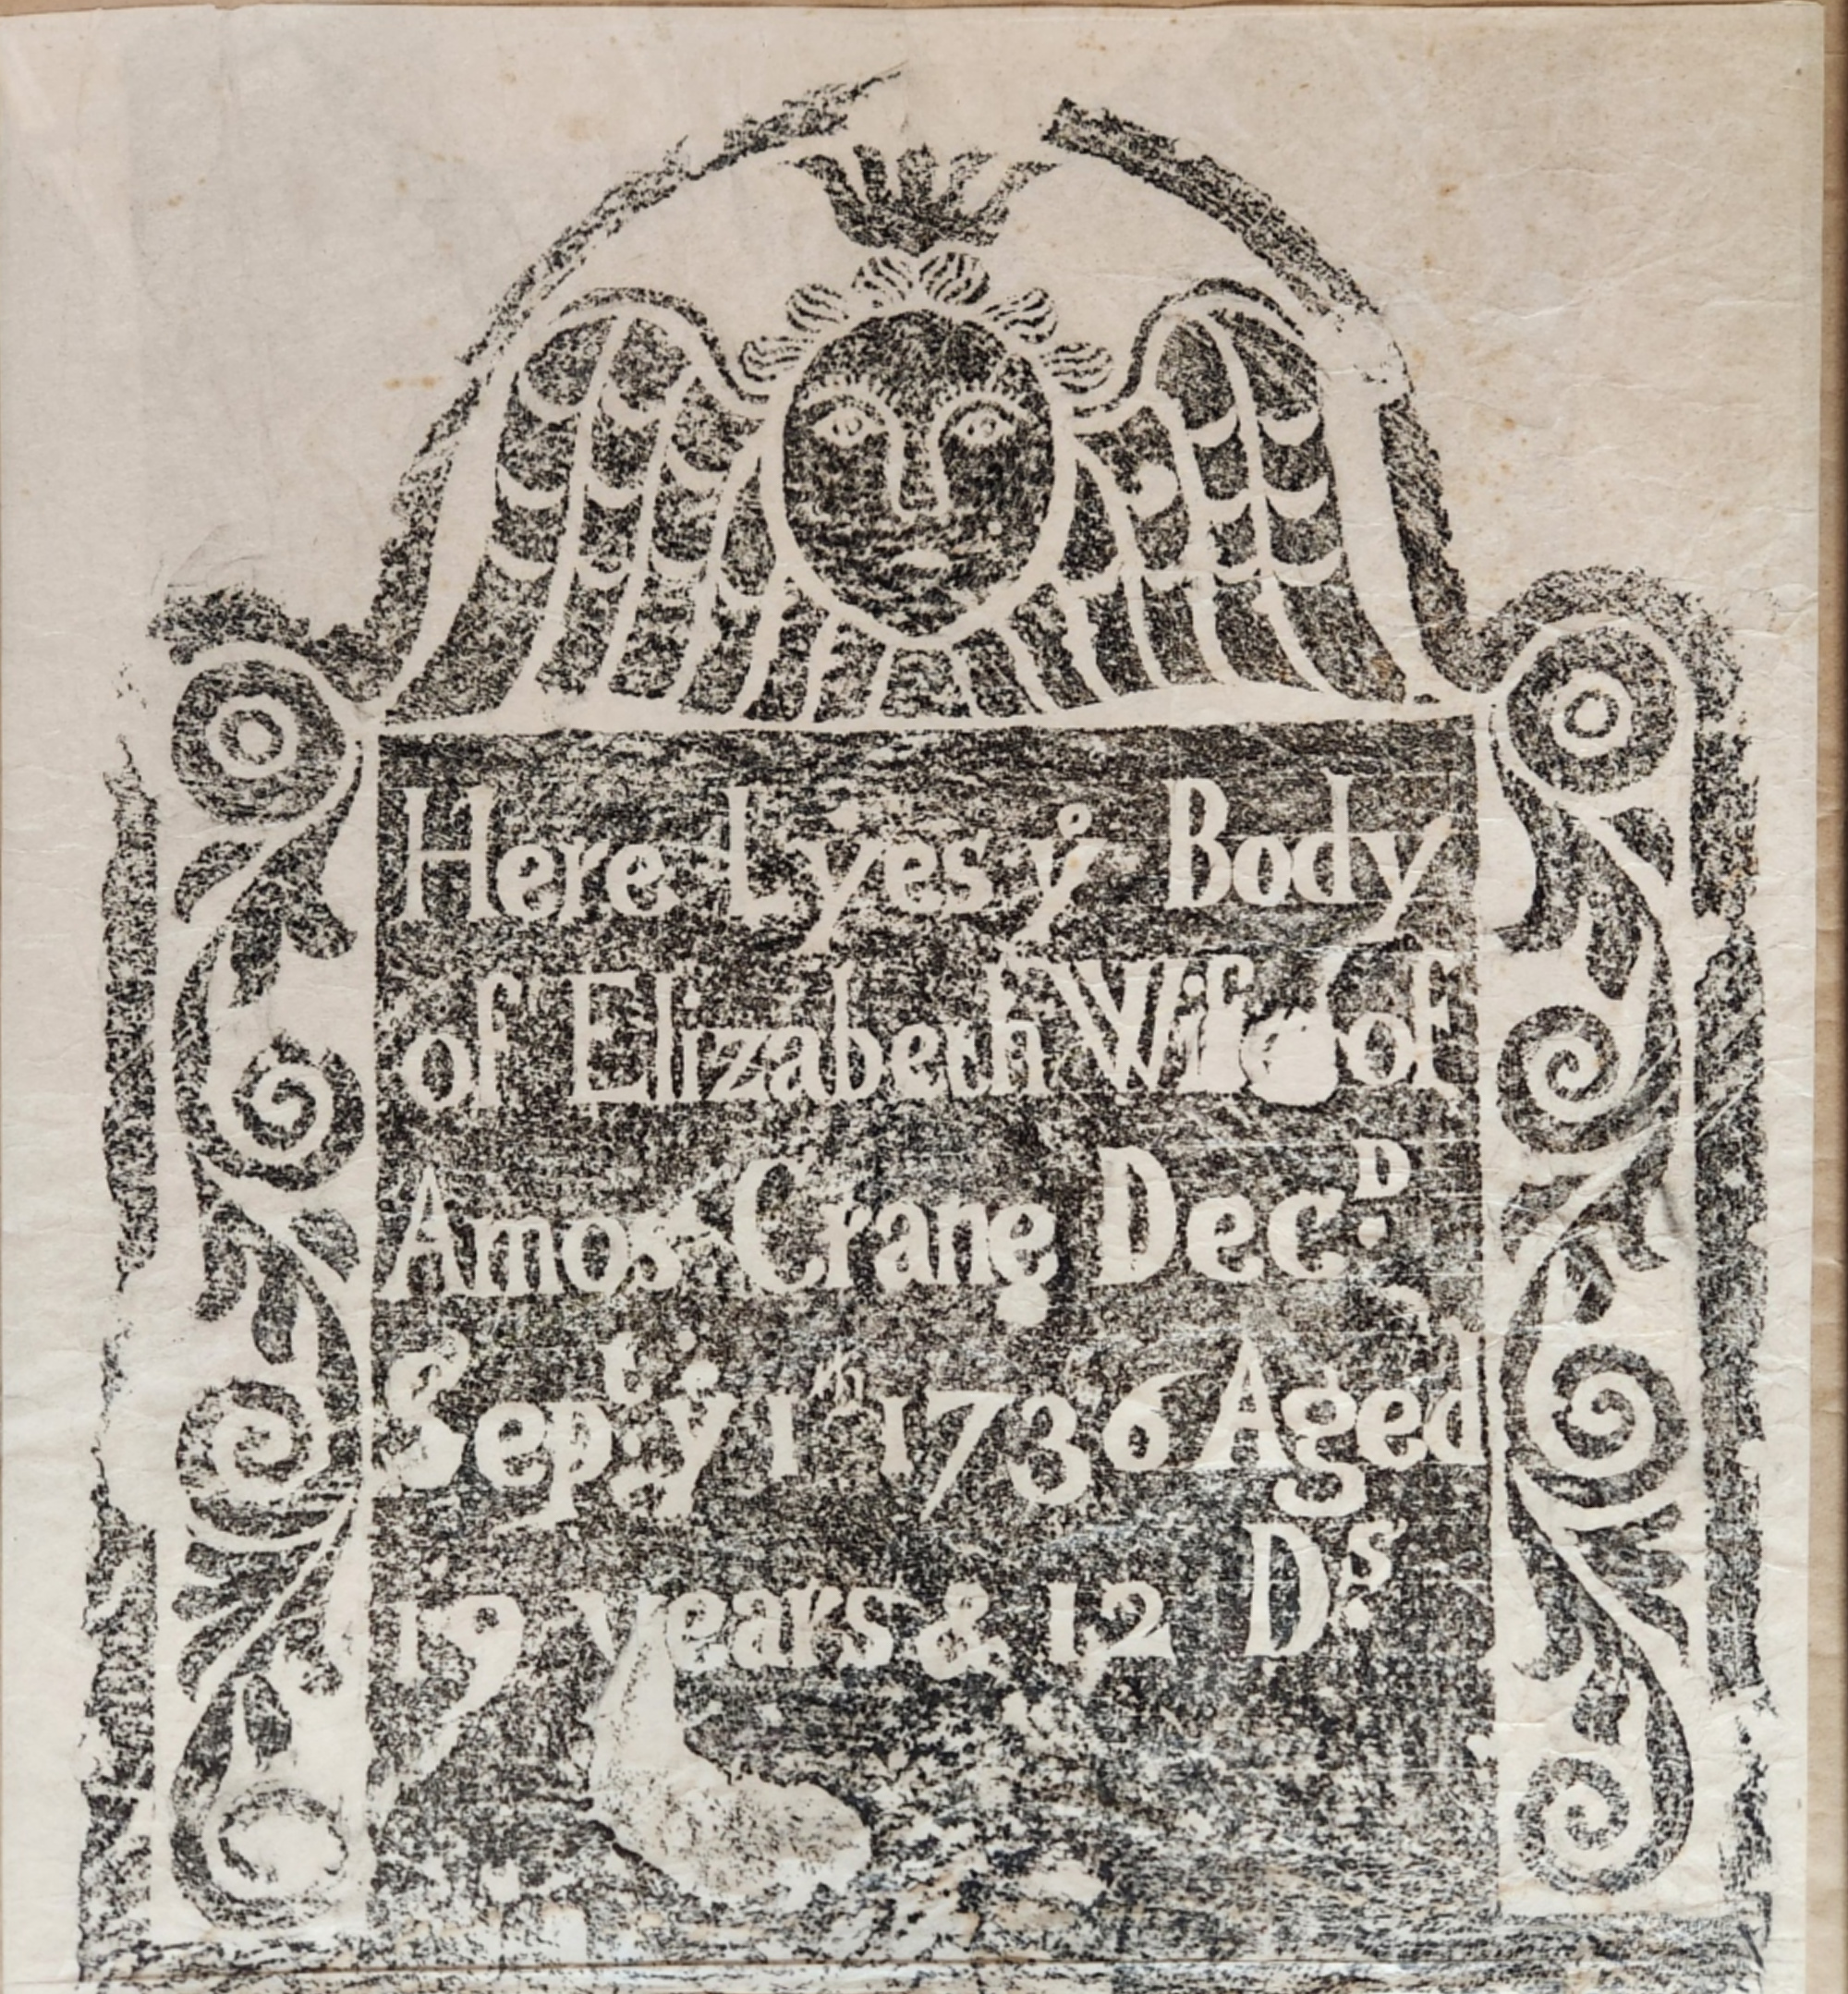 Here Lyes yᵉ Body
of Elizabeth Wife of
Amos Crane Decᴰ.
Sepᵗ. yᵉ 1ᵗʰ 1736 Aged
19 years & 12 Dˢ.